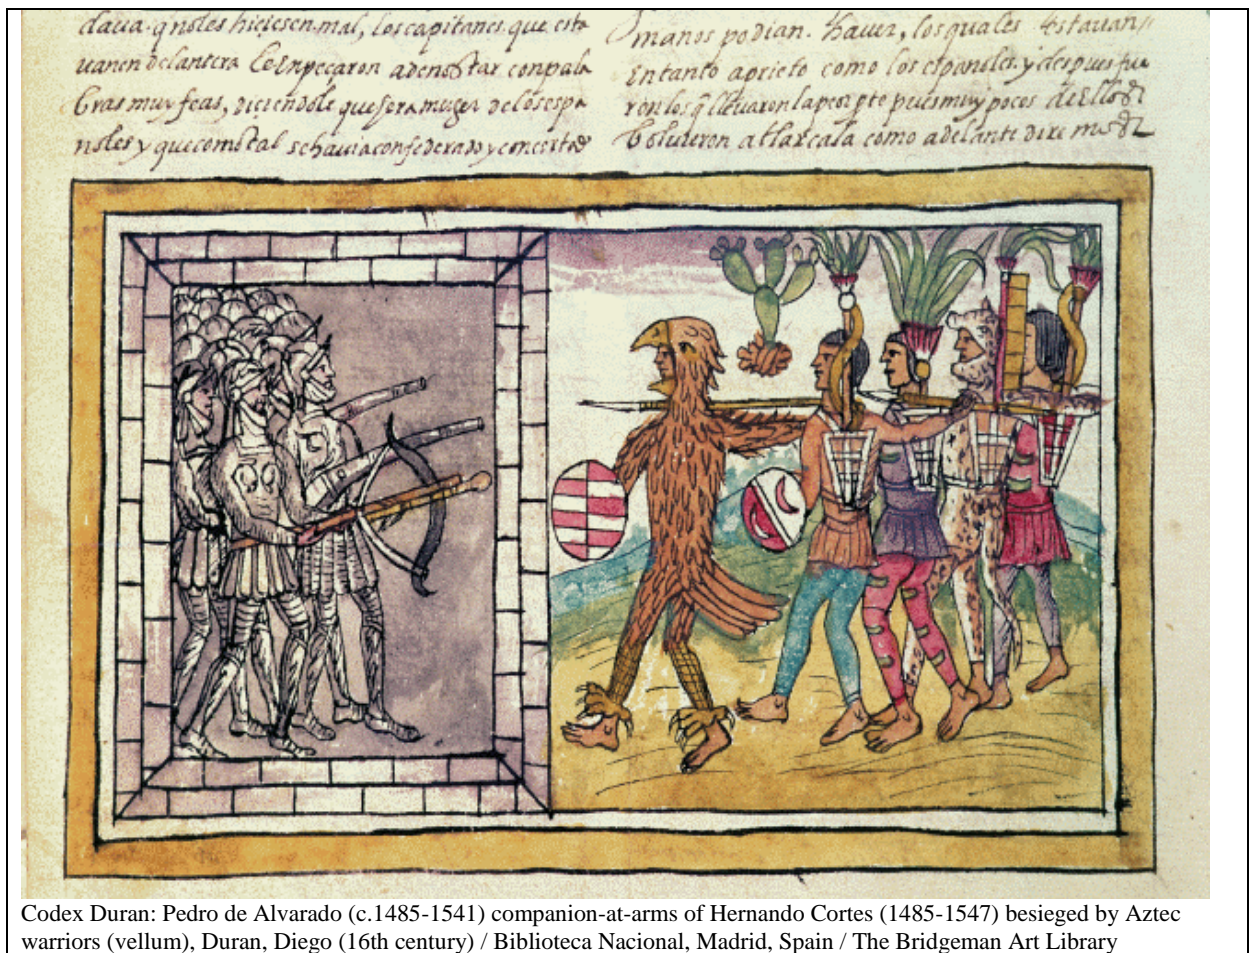 daua. q̃ noles hiçiesen mal, los capitanes que esta
uanen delantera le enpeçaron adenostar con pala
bras muy feas, diçiendole que fera muger de los espa
noles y que como tal se hauia confederado y concertado
manos podian. hauer, los quales estauan
en tanto aprieto como los españoles. y despues fue
ron los q̃ lleuaron la peor pte pues muy pocos dellos
boluieron a tlaxcala como adelante diremos
Codex Duran: Pedro de Alvarado (c.1485-1541) companion-at-arms of Hernando Cortes (1485-1547) besieged by Aztec
warriors (vellum), Duran, Diego (16th century) / Biblioteca Nacional, Madrid, Spain / The Bridgeman Art Library